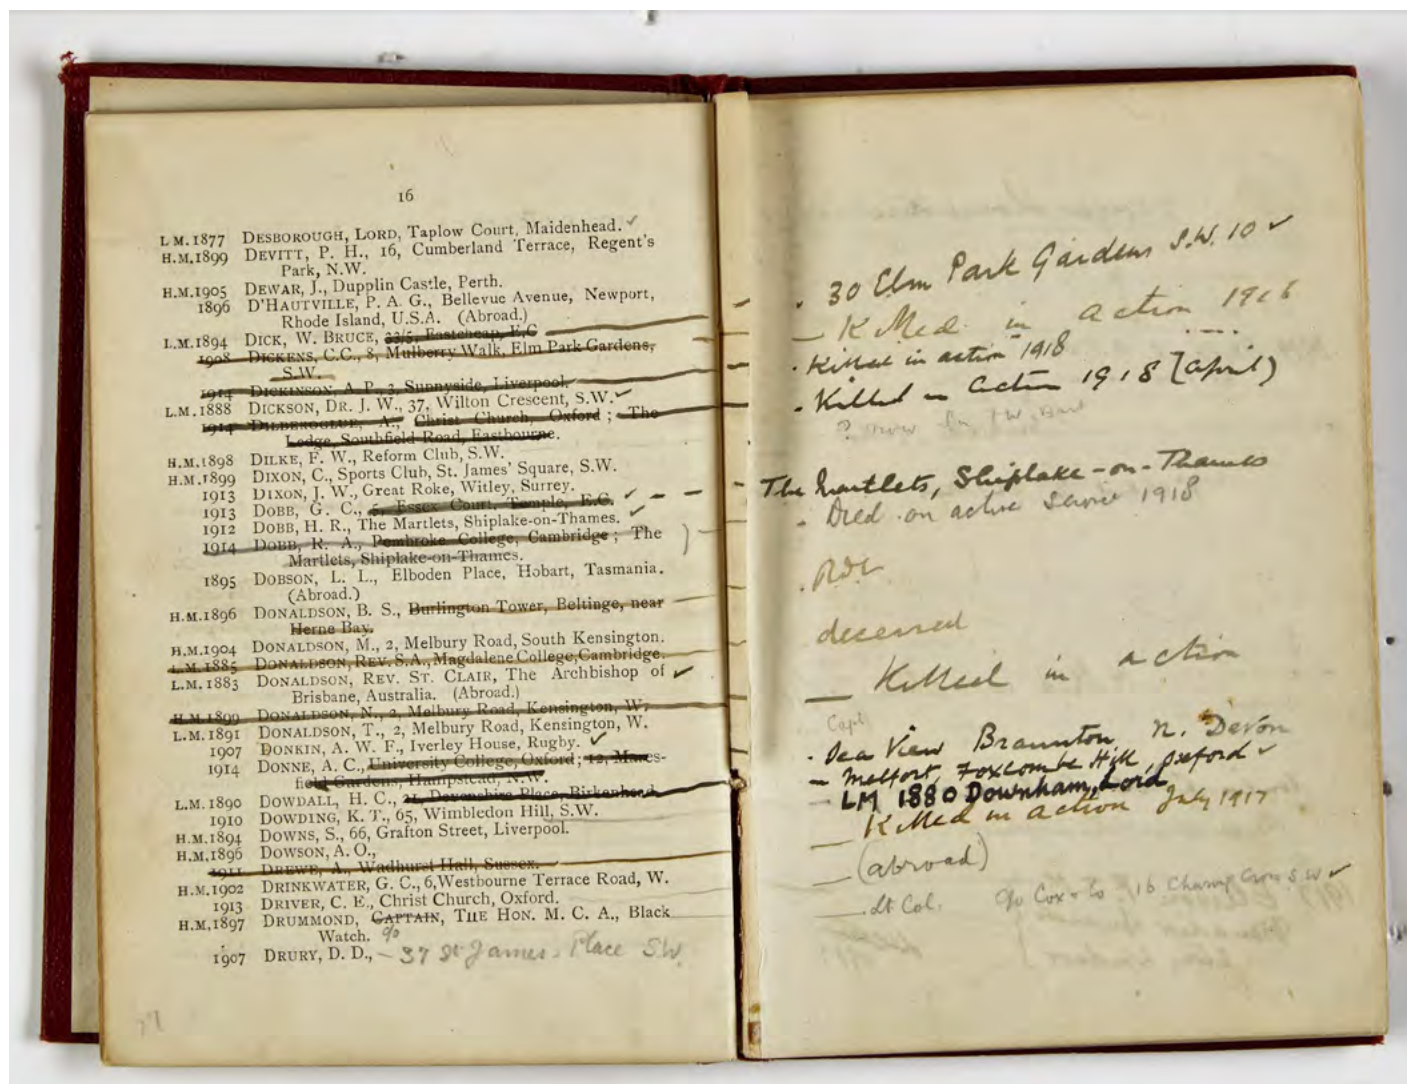 16
L M. 1877 DESBOROUGH, LORD, Taplow Court, Maidenhead. ✓
H.M. 1899 DEVITT, P. H., 16, Cumberland Terrace, Regent's
Park, N.W.
H.M. 1905 DEWAR, J., Dupplin Castle, Perth.
1896 D'HAUTVILLE, P. A. G., Bellevue Avenue, Newport,
Rhode Island, U.S.A. (Abroad.)
L.M. 1894 DICK, W. BRUCE, 33/5, Eastcheap, E.C
1908 DICKENS, C.C., 8, Mulberry Walk, Elm Park Gardens,
S.W.
1914 DICKINSON, A. P., 3, Sunnyside, Liverpool.
L.M. 1888 DICKSON, DR. J. W., 37, Wilton Crescent, S.W. ✓
1914 DILBEROGLUE, A., Christ Church, Oxford ; The
Lodge, Southfield Road, Eastbourne.
H.M. 1898 DILKE, F. W., Reform Club, S.W.
H.M. 1899 DIXON, C., Sports Club, St. James' Square, S.W.
1913 DIXON, J. W., Great Roke, Witley, Surrey.
1913 DOBB, G. C., 5, Essex Court, Temple, E.C. ✓ – –
1912 DOBB, H. R., The Martlets, Shiplake-on-Thames. ✓
1914 DOBB, R. A., Pembroke College, Cambridge ; The
Martlets, Shiplake-on-Thames.
1895 DOBSON, L. L., Elboden Place, Hobart, Tasmania.
(Abroad.)
H.M. 1896 DONALDSON, B. S., Burlington Tower, Beltinge, near
Herne Bay.
H.M. 1904 DONALDSON, M., 2, Melbury Road, South Kensington.
L.M. 1885 DONALDSON, REV. S.A., Magdalene College, Cambridge.
L.M. 1883 DONALDSON, REV. ST. CLAIR, The Archbishop of ✓
Brisbane, Australia. (Abroad.)
H.M. 1899 DONALDSON, N., 2, Melbury Road, Kensington, W.
L.M. 1891 DONALDSON, T., 2, Melbury Road, Kensington, W.
1907 DONKIN, A. W. F., Iverley House, Rugby. ✓
1914 DONNE, A. C., University College, Oxford ; 12, Mares-
field Gardens, Hampstead, N.W.
L.M. 1890 DOWDALL, H. C., 21, Devonshire Place, Birkenhead
1910 DOWDING, K. T., 65, Wimbledon Hill, S.W.
H.M. 1894 DOWNS, S., 66, Grafton Street, Liverpool.
H.M. 1896 DOWSON, A. O.,
1911 DREWE, A., Wadhurst Hall, Sussex.
H.M. 1902 DRINKWATER, G. C., 6, Westbourne Terrace Road, W.
1913 DRIVER, C. E., Christ Church, Oxford.
H.M. 1897 DRUMMOND, CAPTAIN, THE HON. M. C. A., Black
Watch. c/o
1907 DRURY, D. D., – 37 St James. Place S.W.
30 Elm Park Gardens S.W. 10 ✓
– Killed in action 1916
Killed in action 1918
Killed in action 1918 [April)
? now Sir J W, Bart
The Martlets, Shiplake-on-Thames
Died on active service 1918
deceased
– Killed in action
Capt
Sea View Braunton N. Devon
– Melfort, Foxcombe Hill, Oxford ✓
– LM 1880 Downham, Lord
– Killed in action July 1917
– (abroad)
Lt Col. c/o Cox & Co 16 Charing Cross S.W ✓